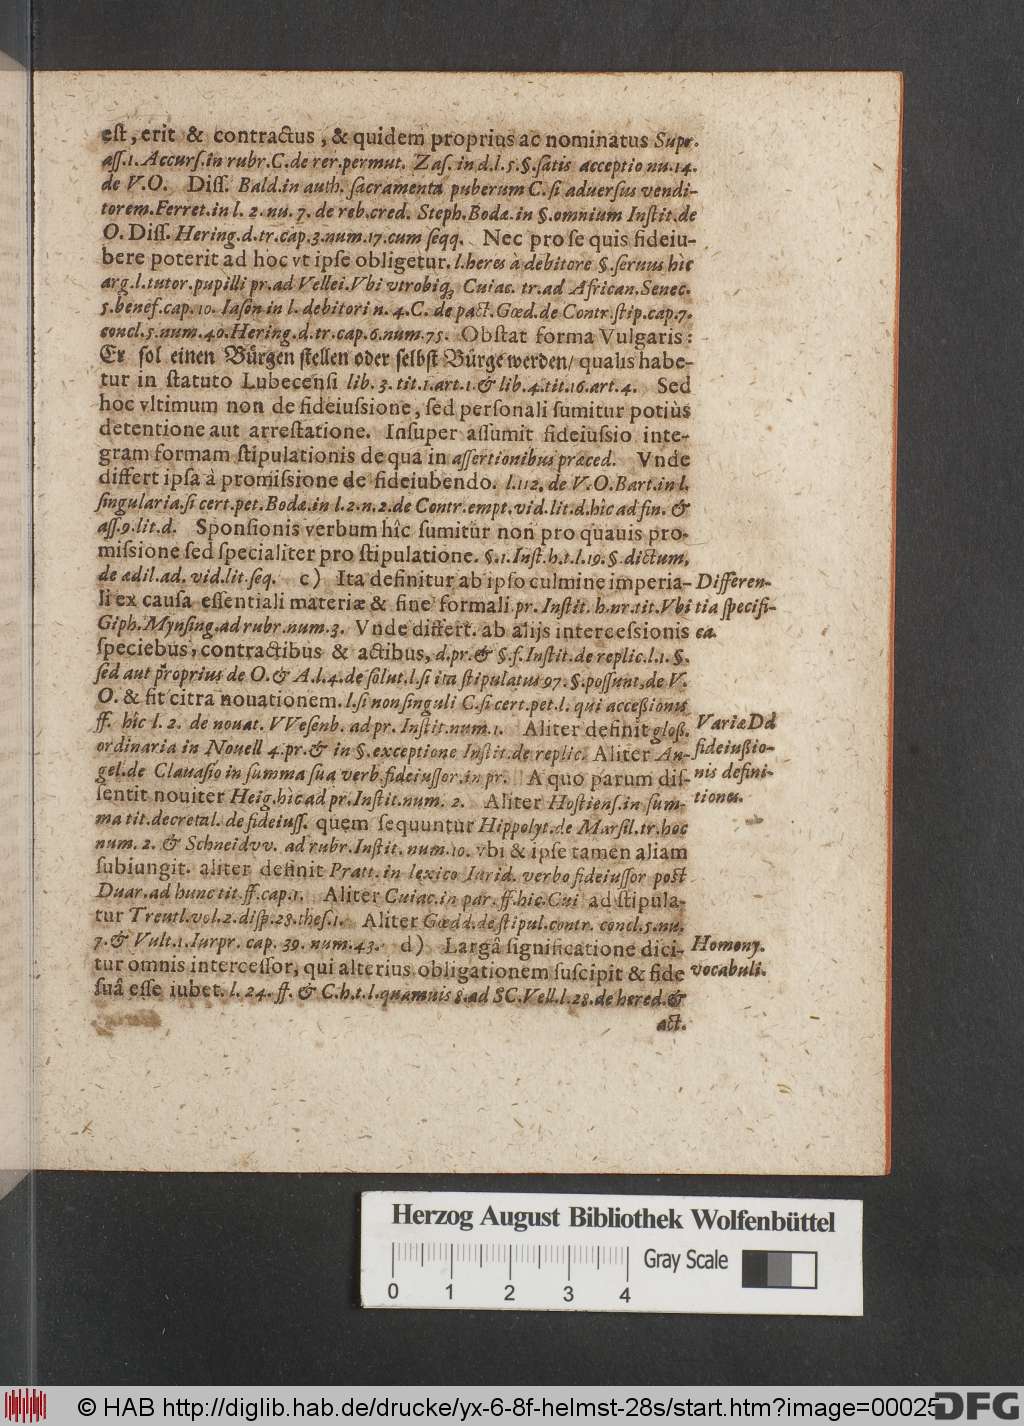 eſt, erit & contractus, & quidem proprius ac nominatus Supr.
aſſ.1. Accurſ.in rubr.C.de rer.permut. Zaſ. in d.l.5.§.ſatis acceptio nu.14.
de V.O. Diſſ. Bald.in auth. ſacramenta puberum C. ſi aduerſus vendi-
torem.Ferret.in l. 2. nu. 7. de reb.cred. Steph.Bodæ.in §.omnium Inſtit.de
O. Diſſ. Hering.d.tr.cap.3.num.17.cum ſeqq. Nec pro ſe quis fideiu-
bere poterit ad hoc vt ipſe obligetur. l.heres à debitore §.ſeruus hic
arg.l.tutor.pupilli pr.ad Vellei.Vbi vtrobiq; Cuiac. tr.ad African.Senec.
5.benef.cap.10. Iaſon in l. debitori n. 4. C. de pact. Gœd.de Contr.ſtip.cap.7.
concl.5.num.40.Hering.d.tr.cap.6.num.75. Obſtat forma Vulgaris:
Er ſol einen Bürgen ſtellen oder ſelbſt Bürge werden/ qualis habe-
tur in ſtatuto Lubecenſi lib. 3. tit.1.art.1 & lib.4.tit.16.art.4. Sed
hoc vltimum non de fideiuſsione, ſed perſonali ſumitur potiùs
detentione aut arreſtatione. Inſuper aſſumit fideiuſsio inte-
gram formam ſtipulationis de qua in aſſertionibus præced. Vnde
differt ipſa à promiſsione de fideiubendo. l.112. de V.O.Bart.in l.
ſingularia.ſi cert.pet.Bodæ.in l.2.n.2.de Contr.empt.vid.lit.d.hic ad fin. &
aſſ.9.lit.d. Sponſionis verbum hîc ſumitur non pro quauis pro-
miſsione ſed ſpecialiter pro ſtipulatione. §.1.Inſt.h.t.l.19.§.dictum,
de ædil.ad. vid.lit.ſeq. c) Ita definitur ab ipſo culmine imperia-
li ex cauſa eſſentiali materiæ & fine formali pr. Inſtit. h.nr.tit.Vbi
Giph.Mynſing.ad rubr.num.3. Vnde differt. ab alijs interceſsionis
ſpeciebus, contractibus & actibus, d.pr.& §.f.Inſtit.de replic.l.1.§.
ſed aut proprius de O.& A.l.4.de ſolut.l.ſi ita ſtipulatus 97.§.poſſunt,de V.
O. & fit citra nouationem. l.ſi non ſinguli C.ſi cert.pet.l. qui acceßionis
ff. hîc l. 2. de nouat. VVeſenb. ad pr. Inſtit.num.1. Aliter definit gloß.
ordinaria in Nouell 4.pr.& in §.exceptione Inſtit.de replic. Aliter An-
gel.de Clauaſio in ſumma ſua verb.fideiuſſor.in pr. A quo parum diſ-
ſentit nouiter Heig.hîc ad pr.Inſtit.num. 2. Aliter Hoſtienſ.in ſum-
ma tit.decretal. de fideiuſſ. quem ſequuntur Hippolyt.de Marſil.tr.hoc
num. 2. & Schneidvv. ad rubr.Inſtit. num.10. vbi & ipſe tamen aliam
ſubiungit. aliter definit Pratt. in lexico Iurid. verbo fideiuſſor poſt
Duar.ad hunc tit.ff.cap.1. Aliter Cuiac.in par. ff.hic.Cui ad ſtipula-
tur Treutl.vol.2.diſp.28.theſ.1. Aliter Gœdd.de ſtipul.contr. concl.5.nu.
7.& Vult.1.Iurpr. cap. 39. num.43. d) Largâ ſignificatione dici-
tur omnis interceſſor, qui alterius obligationem ſuſcipit & fide
ſuâ eſſe iubet. l. 24. ff. & C.h.t.l.quamuis 8.ad SC.Vell.l.28.de hered.&
act.
Differen-
tia ſpecifi-
ca.
Variæ Dd
fideiußio-
nis defini-
tiones.
Homony.
vocabuli.
Herzog August Bibliothek Wolfenbüttel
0 1 2 3 4
Gray Scale
© HAB http://diglib.hab.de/drucke/yx-6-8f-helmst-28s/start.htm?image=00025
DFG